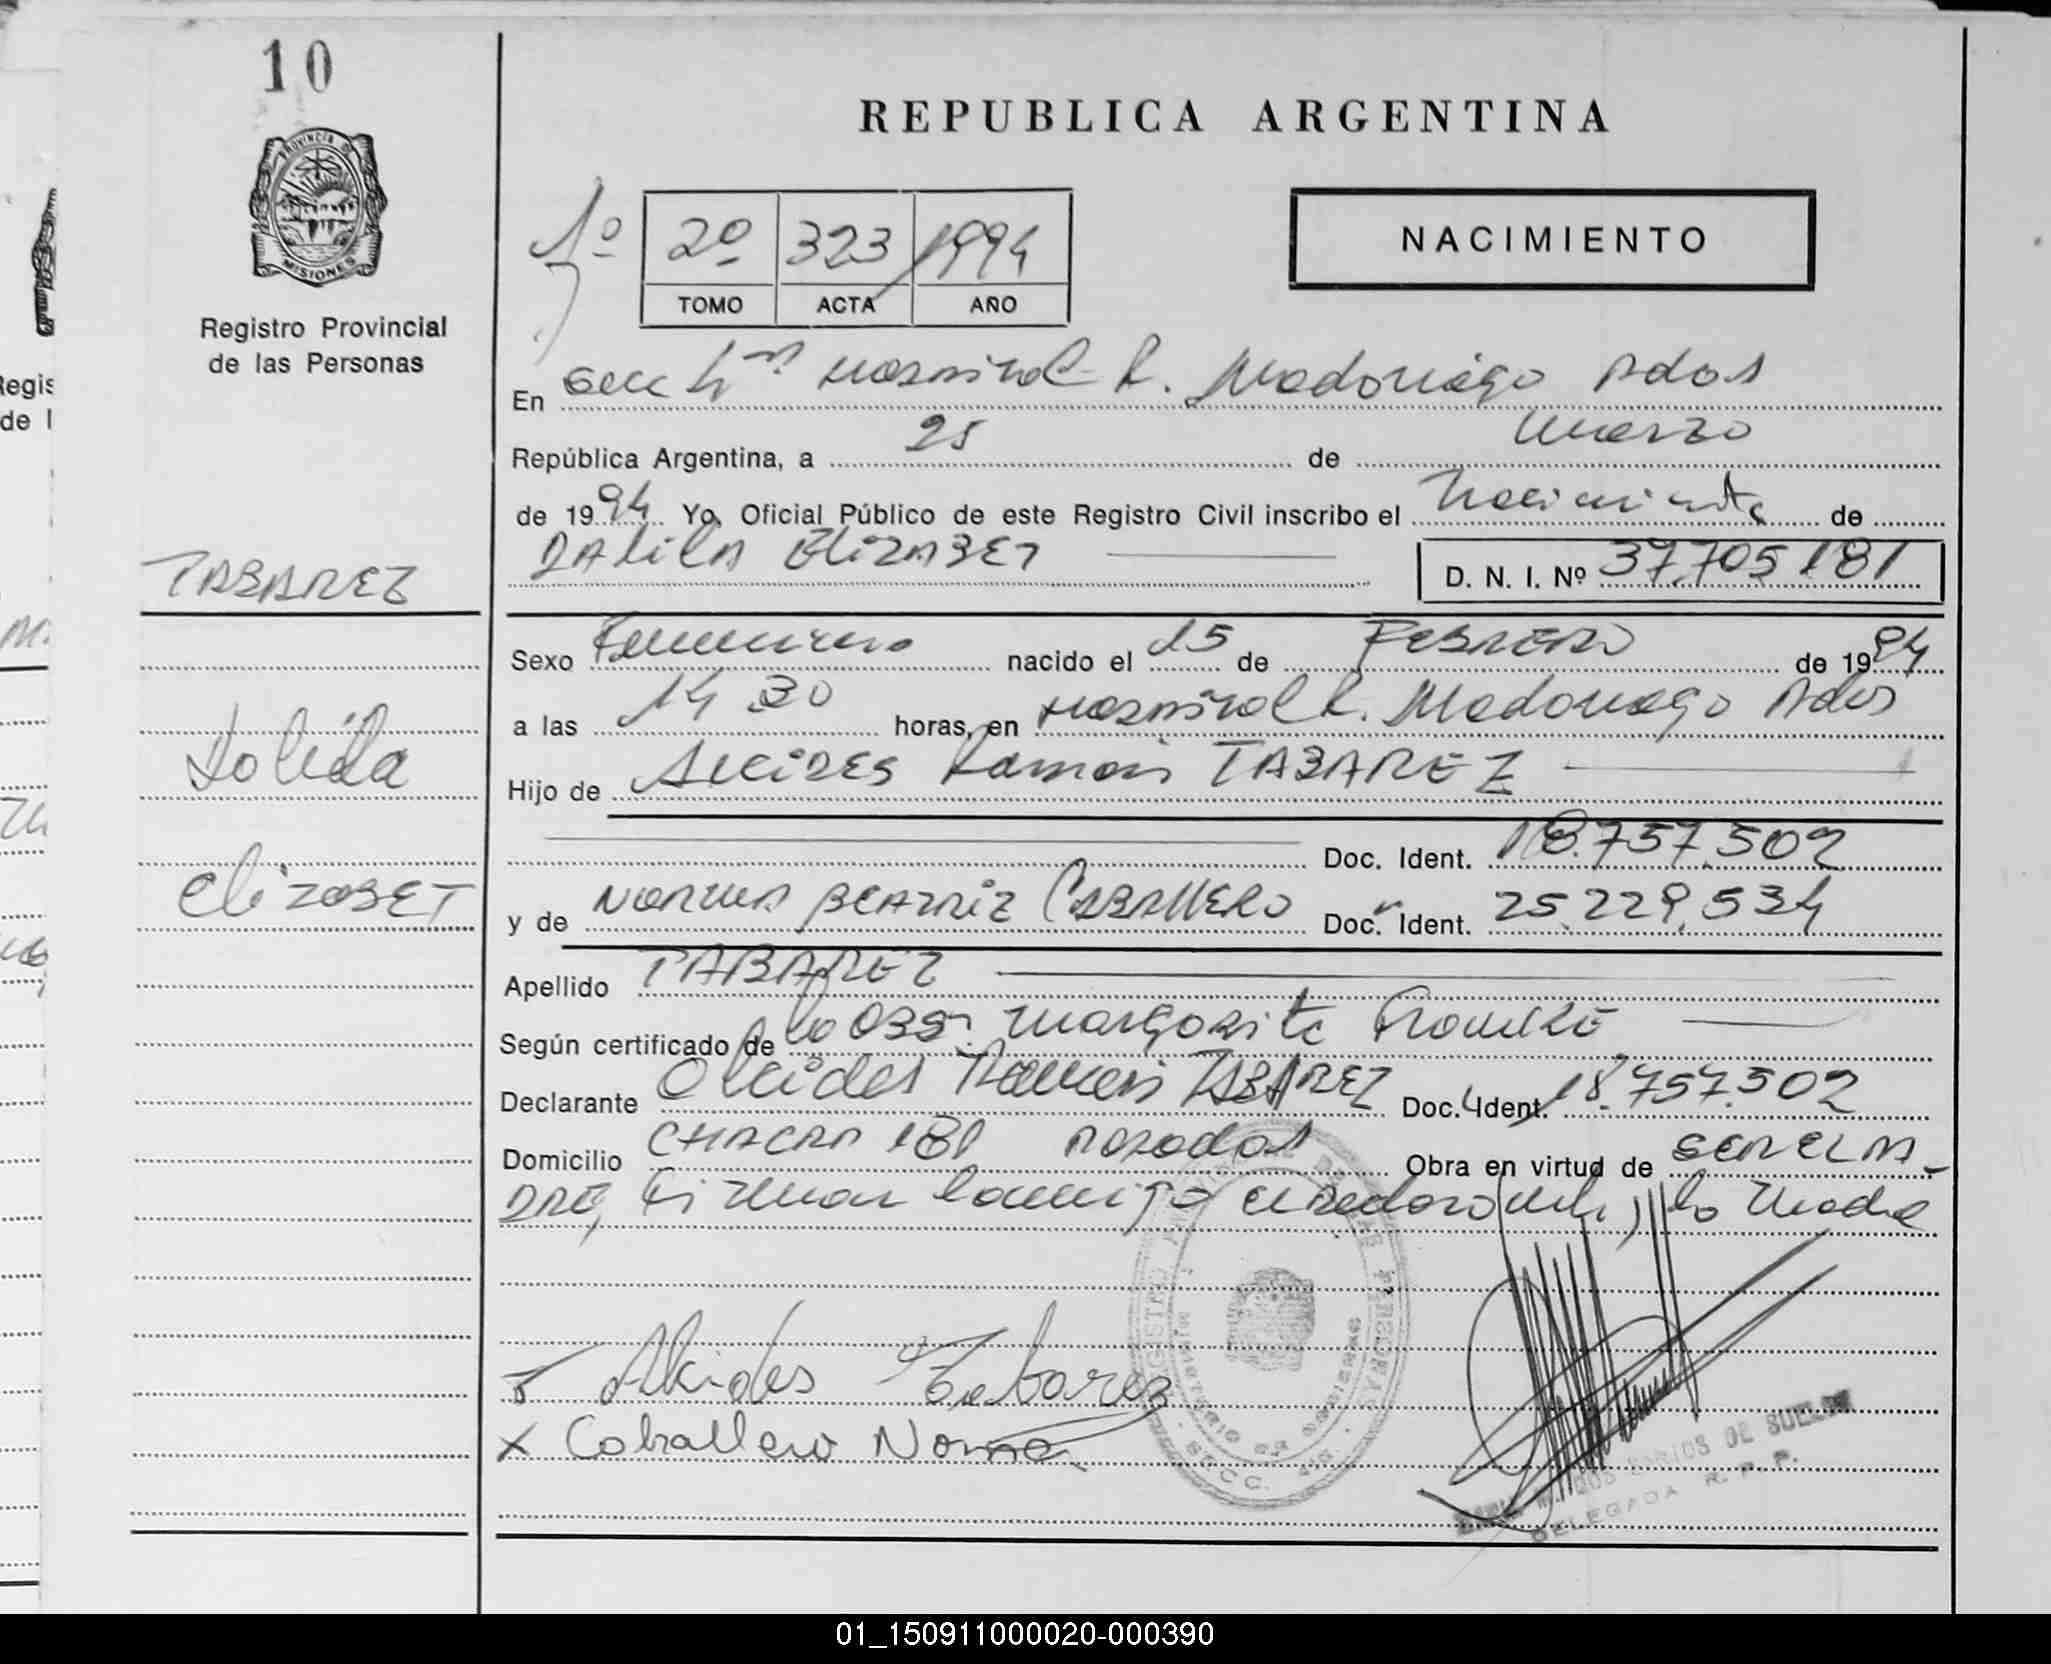 10
REPUBLICA ARGENTINA
PROVINCIA DE
MISIONES
Registro Provincial
de las Personas
1º
2º 323 1994
TOMO ACTA AÑO
NACIMIENTO
En Secc 4ta Hospital R. Madariaga Pdas
República Argentina, a 25 de Marzo
de 1994 Yo, Oficial Público de este Registro Civil inscribo el Nacimiento de
DALILA ELIZABET D. N. I. Nº 37.705.181
TABAREZ
Sexo Femenino nacido el 15 de FEBRERO de 1994
a las 14 30 horas, en Hospital R. Madariaga Pdas
Dalila
Hijo de Alcides Ramón TABAREZ
Doc. Ident. 18.757.502
Elizabet
y de NORMA BEATRIZ CABALLERO Doc. Ident. 25.229.534
Apellido TABAREZ
Según certificado de la Obst. Margarita
Declarante Alcides Ramón TABAREZ Doc. Ident. 18.757.502
Domicilio CHACRA 181 Posadas Obra en virtud de SER EL PA-
DRE, Firman conmigo el declarante, la Madre
Alcides Tabarez
x Caballero Norma
DE SUELDO
DELEGADA R. P. P.
Regis
de l
01_150911000020-000390